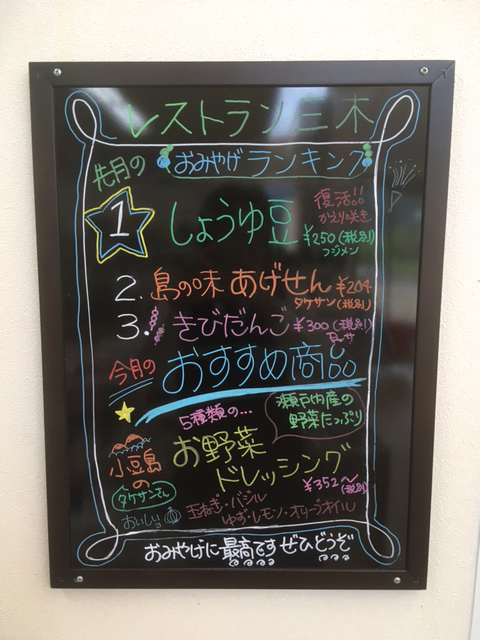 レストラン三木
先月の
おみやげランキング
1 しょうゆ豆
復活!!
かえり咲き
¥250(税別)
フジメン
2. 島の味 あげせん ¥204
タケサン(税別)
3. きびだんご ¥300(税別)
今月の
おすすめ商品
5種類の…
瀬戸内産の
野菜たっぷり
小豆島
の
タケサンさん
お野菜
ドレッシング
¥352～
(税別)
おいしいョ
玉ねぎ・バジル
ゆず・レモン・オリーブオイル
おみやげに最高です ぜひどうぞ